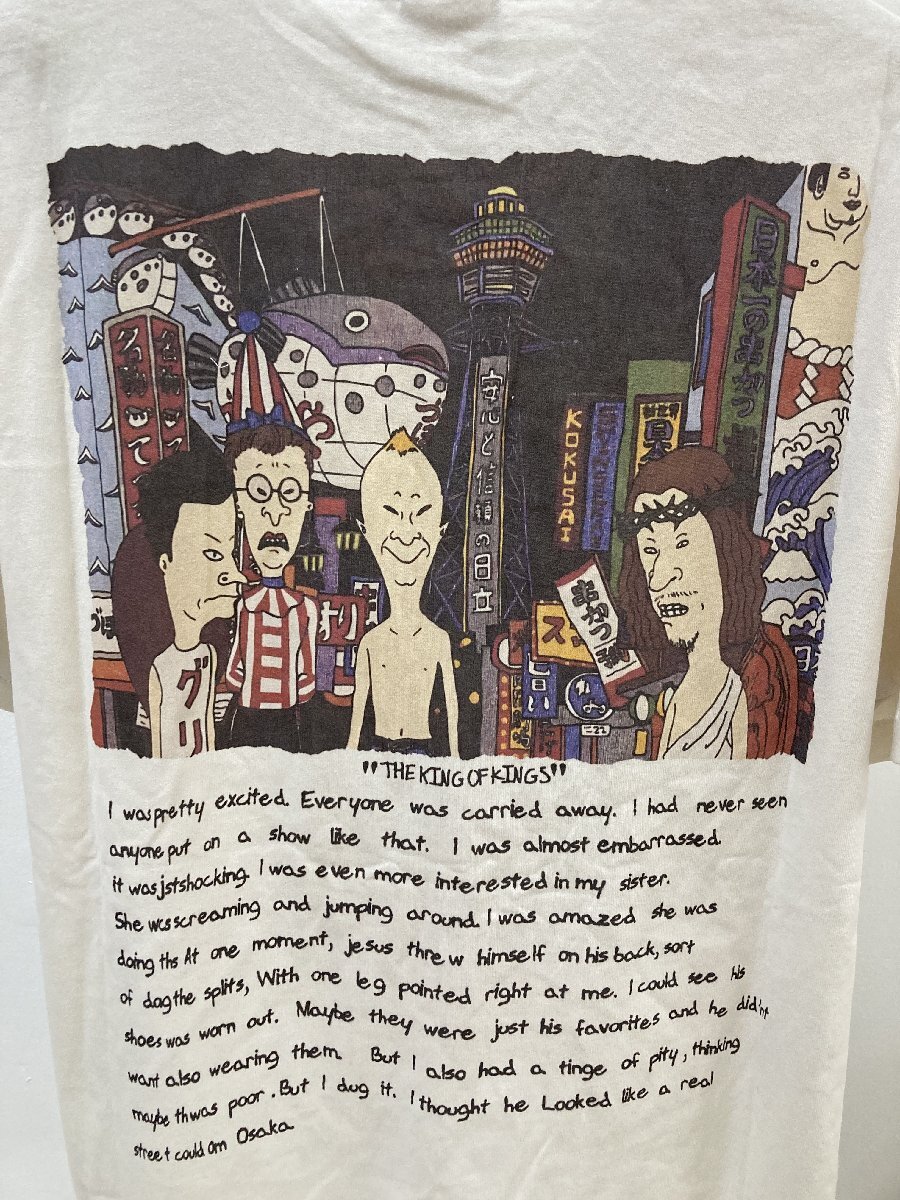 日本一の串かつ
名物
づぼ
安心と信頼の日立
KOKUSAI
日本
串かつ
ス
グリ
"THE KING OF KINGS"
I was pretty excited. Everyone was carried away. I had never seen
anyone put on a show like that. I was almost embarrassed.
it was jstshocking. I was even more interested in my sister.
She was screaming and jumping around. I was amazed she was
doing ths At one moment, jesus threw himself on his back, sort
of dogthe splits, With one leg pointed right at me. I could see his
shoes was worn out. Maybe they were just his favorites and he did'nt
want also wearing them. But I also had a tinge of pity, thinking
maybe thwas poor. But I dug it. I thought he Looked like a real
street could om Osaka